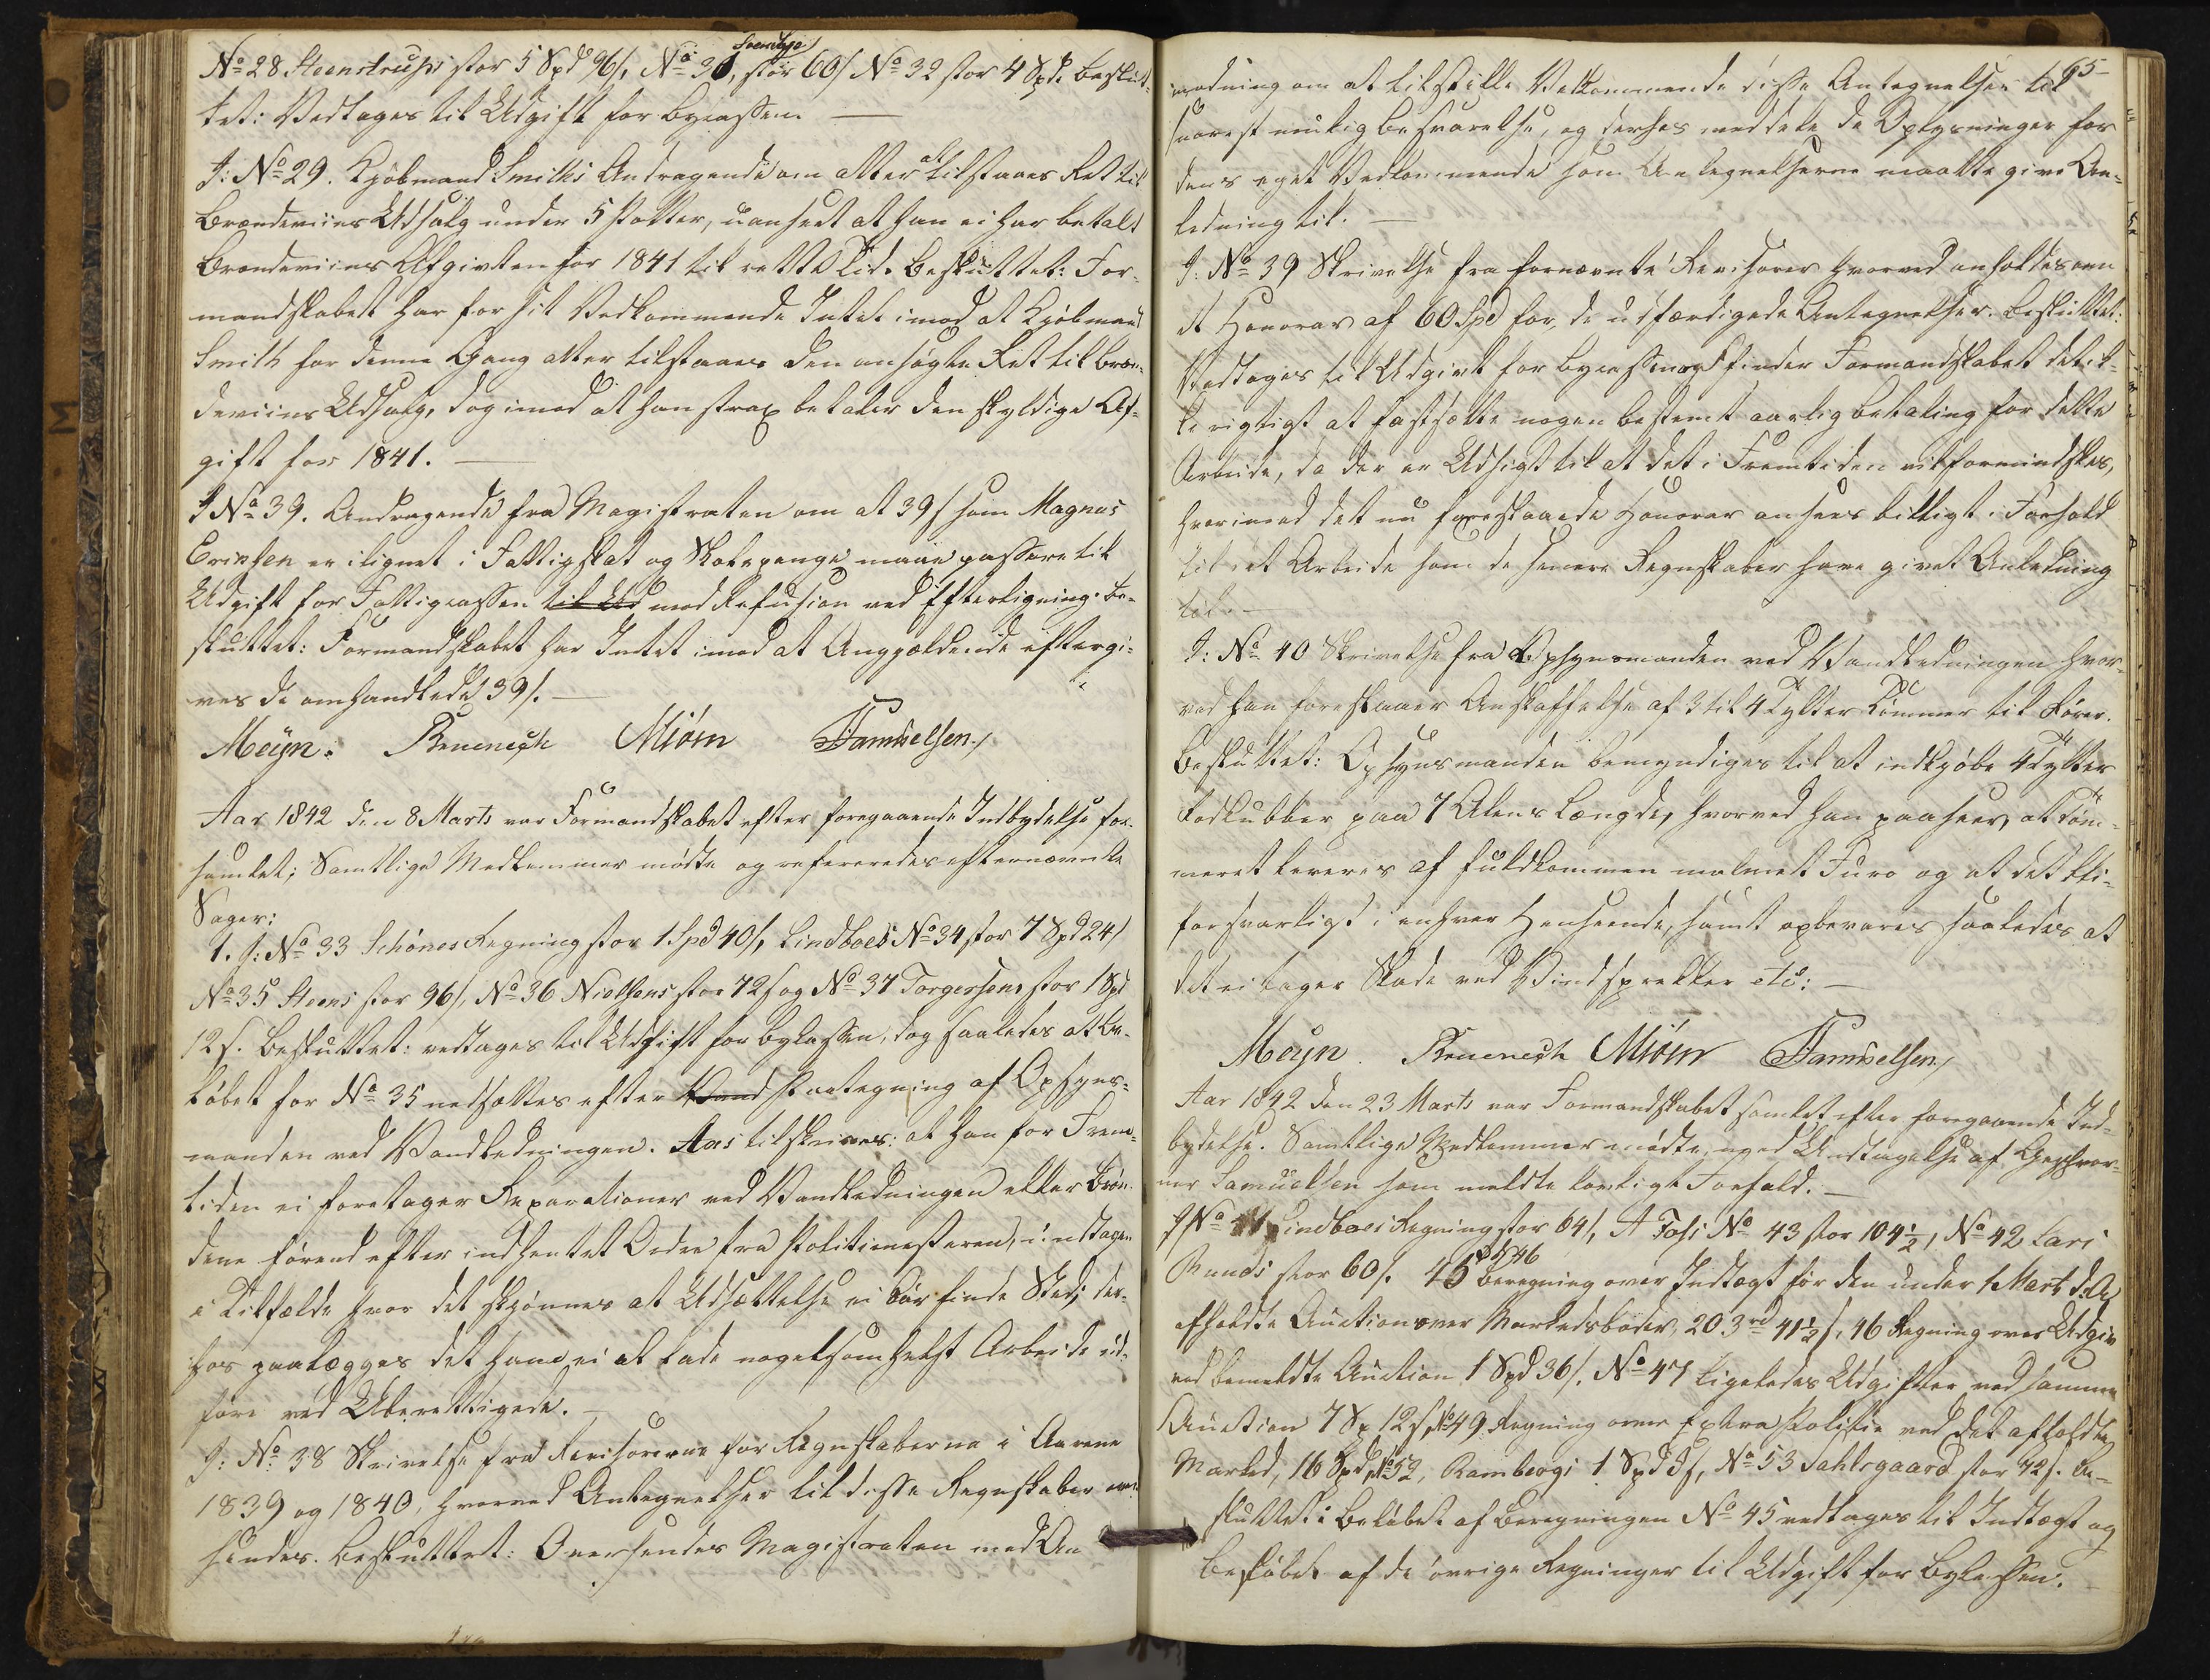 Svendges
No 28 Steenstrups stor 5 Spd 96 s, No 30, stor 60 s No 32 stor 4 Spd. Beslut-
tet: Vedtages til Udgift for Bycassen —
J: No 29. Kjøbmand Smiths Andragende om atter at tilstaaes Ret til
Brændeviins Udsalg under 5 Potter, uanseet at han ei har betalt
Brændeviins Afgivten for 1841 til rette Tid. Besluttet: For-
mandskabet har for sit Vedkommende Intet imod at Kjøbmand
Smith for denne Gang atter tilstaaes den ansøgte Ret til Bræn-
deviins Udsalg, dog imod at han strax betaler den skyldige Af-
gift for 1841. —
J No 39. Andragende fra Magistraten om at 39 s som Magnus
Erichsen er ilignet i Fattigskat og Skolepenge maae passere til
Udgift for Fattigcassen til Ud mod Refusion ved Efterligning. Be-
sluttet: Formandskabet har Intet imod at Angjældende eftergi-
ves de omhandlede 39 s. —
Meyn. Benenejk Miörn Samuelsen
Aar 1842 den 8 Marts var Formandskabet efter foregaaende Indbydelse for-
samlet; Samtlige Medlemmer mødte og refereredes efternævnte
Sager:
1. J: No 33 Schönes Regning stor 1 Spd 40 s, Lindboes No 34 stor 7 Spd 24 s
No 35 Steens stor 96 s, No 36 Nielsens stor 72 s og No 37 Torgersens stor 1 Spd
12 s. Besluttet: vedtages til Udgift for Bykassen, dog saaledes at Be-
løbet for No 35 nedsættes efter Vand Paategning af Opsyns-
manden ved Vandledningen. Aas tilskrives: at han for Frem-
tiden ei foretager Reparationer ved Vandledningen eller Brøn-
dene førend efter indhentet Ordre fra Politimesteren, undtagen
i Tilfælde hvor det skjønnes at Udsættelse ei bør finde Sted; der-
hos paalægges det ham ei at lade nogetsomhelst Arbeide ud-
føre ved Uberettigede. —
J: No 38 Skrivelse fra Revisorerne for Regnskaberne i Aarene
1839 og 1840, hvorved Antegnelser til disse Regnskaber over-
sendes. Besluttet: Oversendes Magistraten med An-
65
modning om at tilstille Vedkommende disse Antegnelser til
snarest mulig Besvarelse, og derhos meddele de Oplysninger for
dens eget Vedkommende som Antegnelserne maatte give An-
ledning til. —
J: No 39 Skrivelse fra fornævnte Revisorer hvorved anholdes om
et Honorar af 60 Spd for de udfærdigede Antegnelser. Besluttet:
Vedtages til Udgivt for Bycassen og finder Formandskabet det ik-
ke rigtigt at fastsætte nogen bestemt aarlig Betaling for dette
Arbeide, da der er Udsigt til at det i Fremtiden vil formindskes,
hvorimod det nu foreslaaede Honorar ansees billigt i Forhold
til det Arbeide som de senere Regnskaber have givet Anledning
til. —
J: No 40 Skrivelse fra Opsynsmanden ved Vandledningen hvor-
ved han foreslaaer Anskaffelse af 3 til 4 Tylter Tømmer til Rører.
Besluttet: Opsynsmanden bemyndiges til at indkjøbe 4 Tylter
Rodlubber paa 7 Alens Længde, hvorved han paaseer, at Tøm-
meret leveres af fuldkommen malmet Furo og at det bli-
forsvarligt i enhver Henseende, samt opbevares saaledes at
det ei tager Skade ved Vindsprekker etc: —
Meyn. Benenejk Miörn Samuelsen
Aar 1842 den 23 Marts var Formandskabet samlet efter foregaaende Ind-
bydelse. Samtlige Medlemmer mødte, med Undtagelse af
Samuelsen som meldte lovligt Forfald. —
J No 41 Lindboes Regning stor 64 s, A Foss No 43 stor 104 1/2 s, No 42 Lars
Runds stor 60 s. 45 & 46 Beregning over Indtægt for den under 1 Marts d. A
afholdte Auction over Markedsboder, 20. 3 41 1/2 s, 46 Regning over Udgiv
ved bemeldte Auction 1 Spd 36 s. No 47 ligeledes Udgifter ved samme
Auction 7 Sp 12 s, No 49 Regning over Extra Politie ved det afholdte
Marked, 16 Spd, No 52, Rambergs 1 Spd s, No 53 Dahlsgaard stor 42 s. Be-
sluttet: Beløbet af Beregningen No 45 vedtages til Indtægt og
Beløbet af de øvrige Regninger til Udgift for Bykassen.